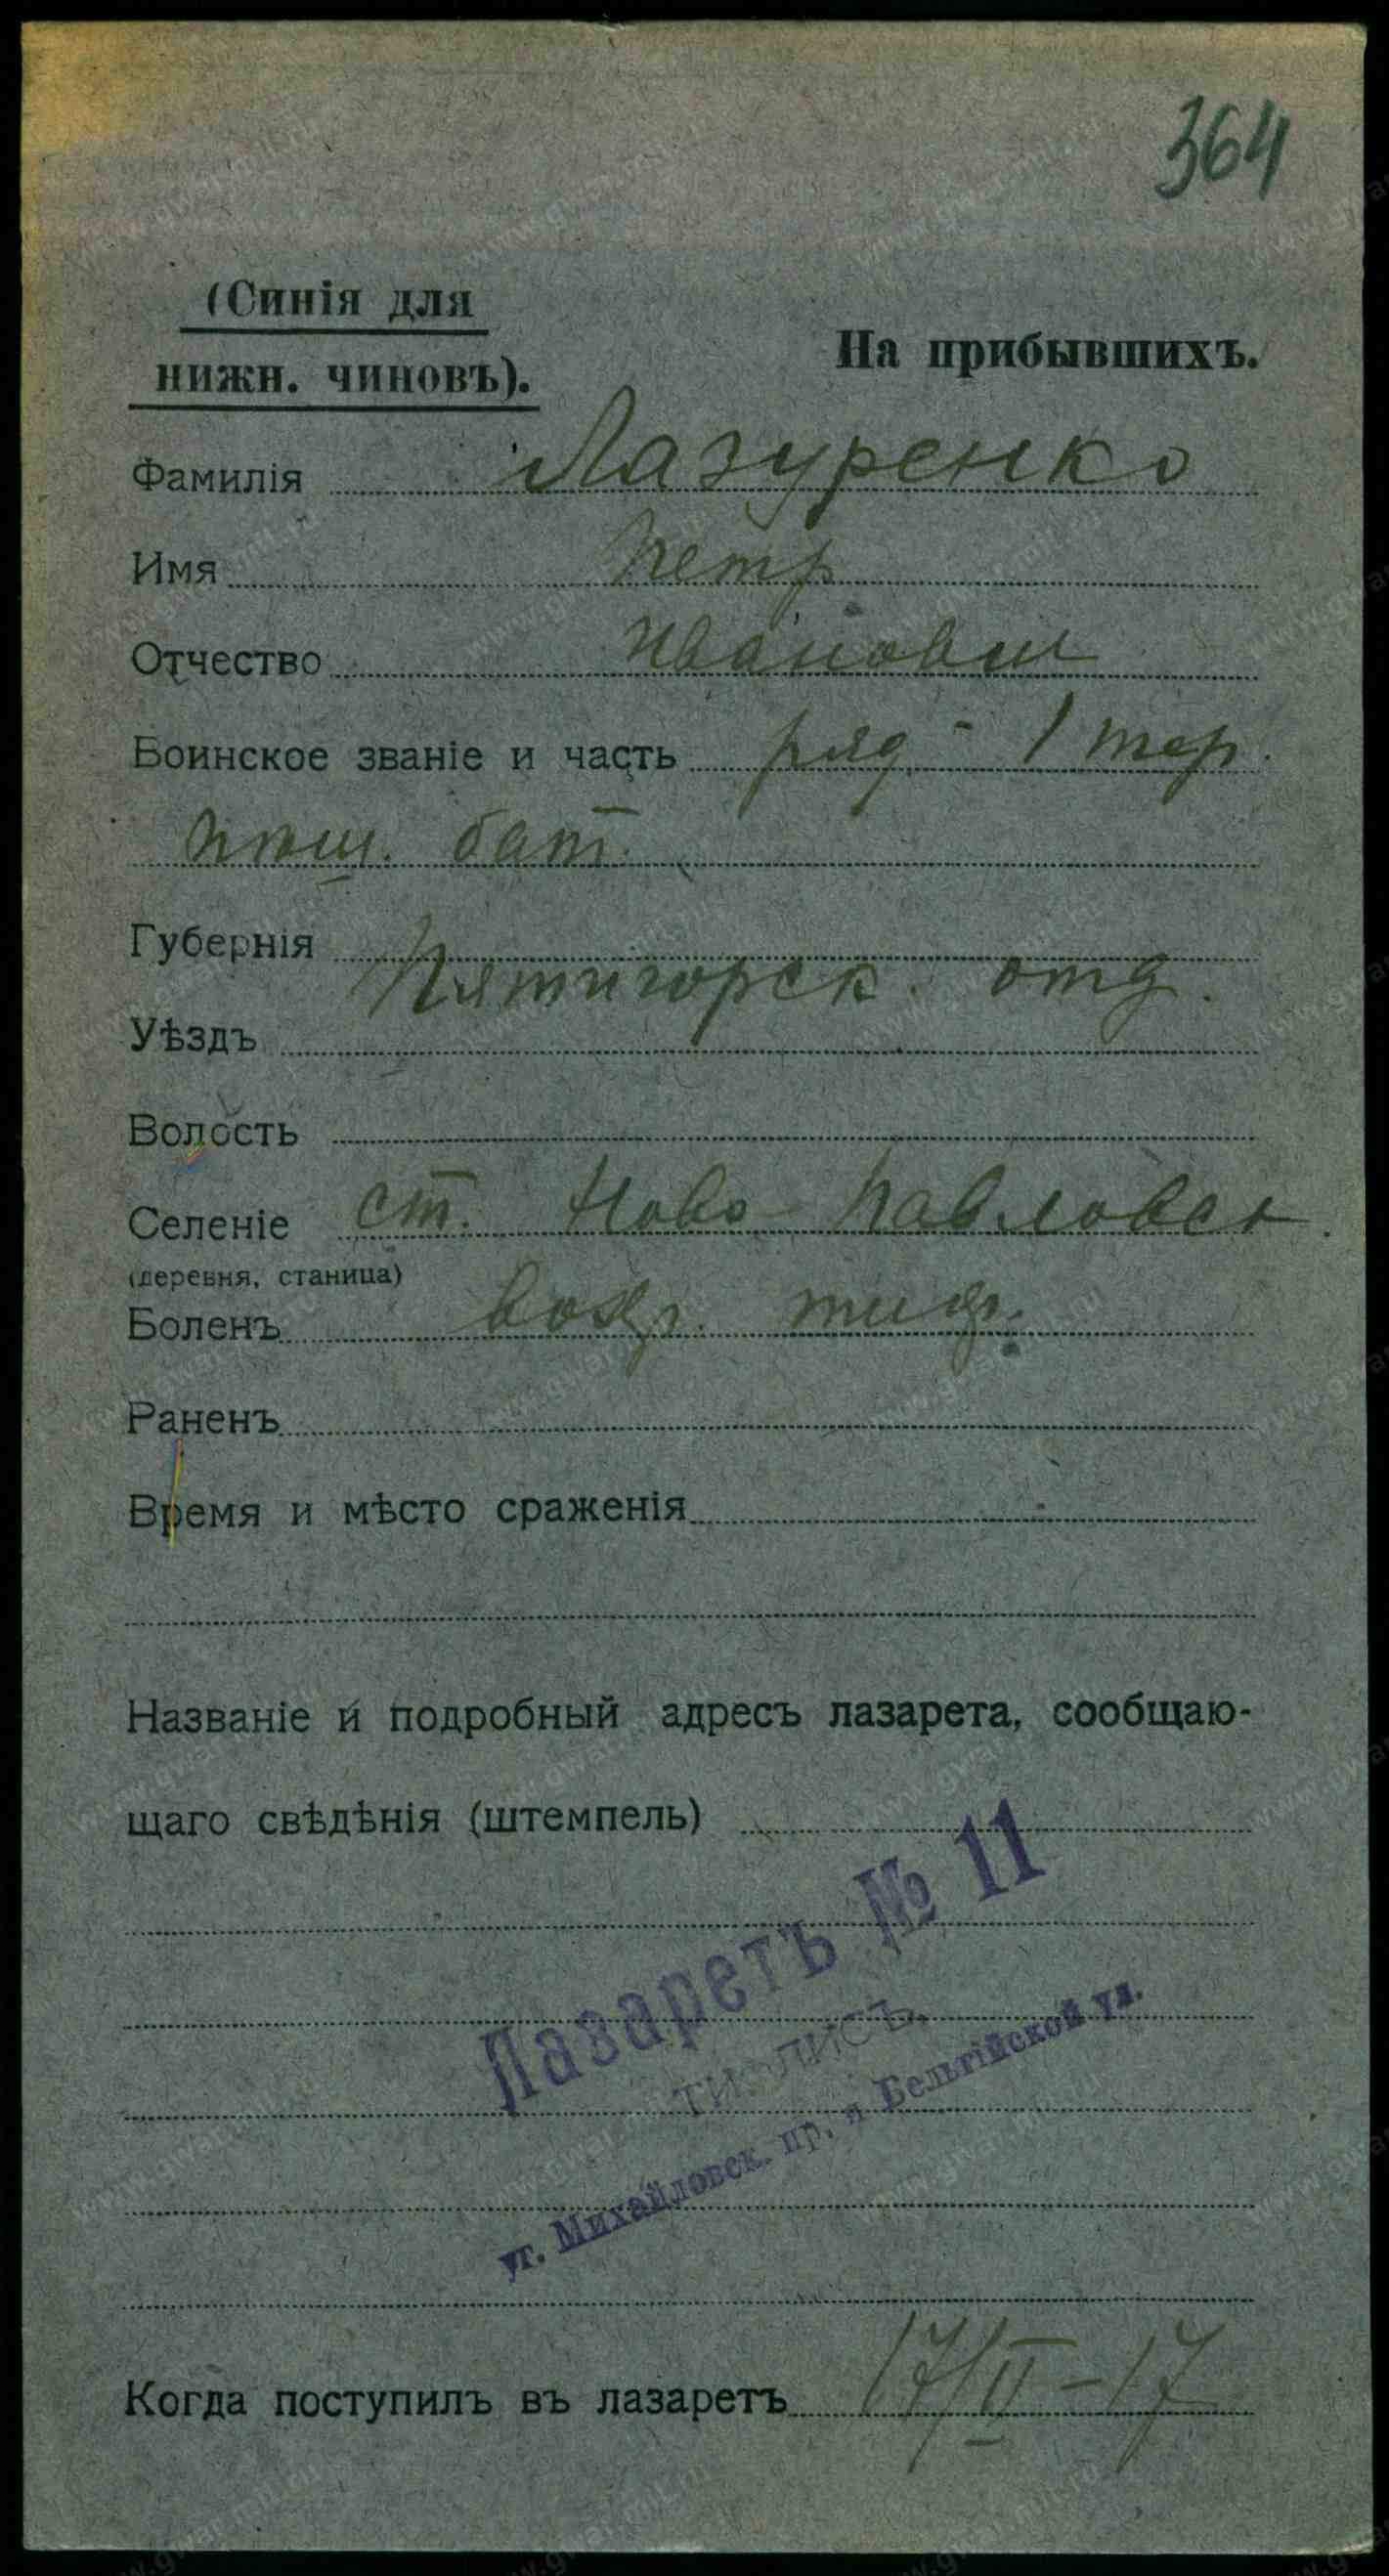 364
(Синія для
нижн. чиновъ).
На прибывшихъ.
Фамилія Лазуренко
Имя Петр
Отчество Иванович
Воинское званіе и часть ряд - 1 тер.
пѣш. бат.
Губернія
Пятигорск. отд.
Уѣздъ
Волость
Селеніе ст. Ново-Павловск.
(деревня, станица)
Боленъ возвр. тиф.
Раненъ
Время и мѣсто сраженія
Названіе и подробный адресъ лазарета, сообщаю-
щаго свѣдѣнія (штемпель)
Лазаретъ № 11
ТИФЛИСЪ,
уг. Михайловск. пр. и Бельгійской ул.
Когда поступилъ въ лазаретъ 17/II-17